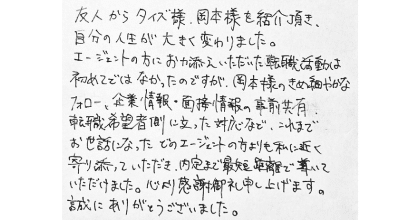 友人からタイズ様、岡本様を紹介頂き、
自分の人生が大きく変わりました。
エージェントの方にお力添えいただいた転職活動は
初めてではなかったのですが、岡本様のきめ細やかな
フォロー、企業情報・面接情報の事前共有、
転職希望者側に立った対応など、これまで
お世話になったどのエージェントの方よりも私に近く
寄り添っていただき、内定まで最短距離で導いて
いただけました。心より感謝御礼申し上げます。
誠にありがとうございました。